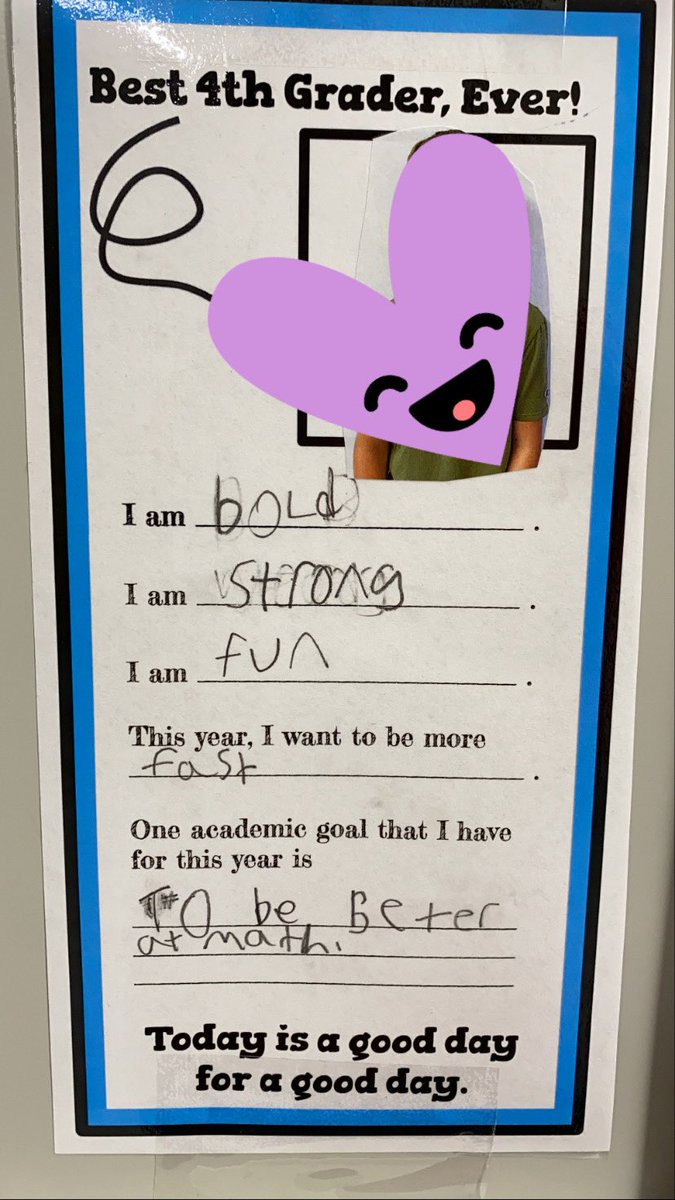 Best 4th Grader, Ever!
I am bOLd.
I am strong.
I am fun.
This year, I want to be more
fast.
One academic goal that I have
for this year is
TO be Beter
at math.
Today is a good day
for a good day.